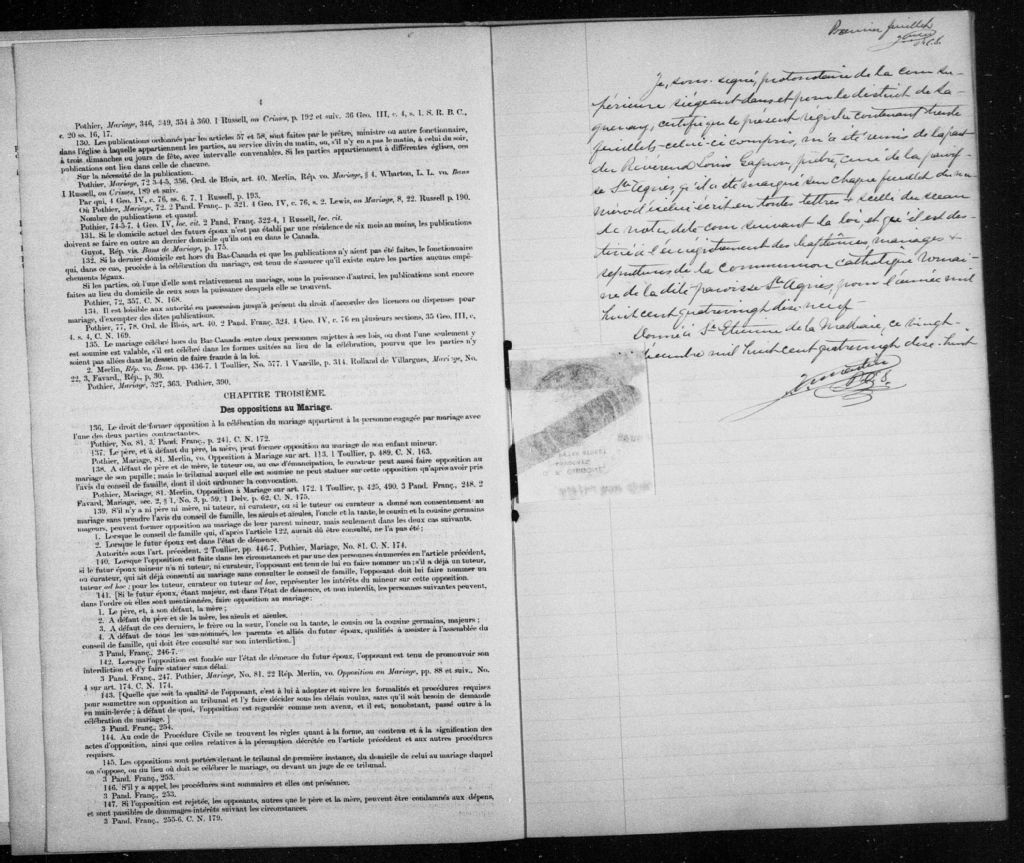 4
Pothier, Mariage, 346, 349, 354 à 360. 1 Russell, on Crimes, p. 192 et suiv. 36 Geo. III, c. 4, s. 1. S. R. B. C.,
c. 20 ss. 16, 17.
130. Les publications ordonnés par les articles 57 et 58, sont faites par le prêtre, ministre ou autre fonctionnaire,
dans l'église à laquelle appartiennent les parties, au service divin du matin, ou, s'il n'y en a pas le matin, à celui du soir,
à trois dimanches ou jours de fête, avec intervalle convenables. Si les parties appartiennent à différentes églises, ces
publications ont lieu dans celle de chacune.
Sur la nécessité de la publication.
Pothier, Mariage, 72 3-4-5, 356, Ord. de Blois, art. 40. Merlin, Rép. vo. Mariage, § 4. Wharton, L. L. vo. Bans
1 Russell, on Crimes, 189 et suiv.
Par qui, 4 Geo. IV, c. 76, ss. 6, 7. 1 Russell, p. 193.
Où Pothier, Mariage, 72. 2 Pand. Franç. p. 321. 4 Geo. IV, c. 76, s. 2. Lewis, on Mariage, 8, 22. Russell p. 190.
Nombre de publications et quand.
Pothier, 74-5-7. 4 Geo. IV, loc. cit. 2 Pand. Franç. 322-4, 1 Russell, loc. cit.
131. Si le domicile actuel des futurs époux n'est pas établi par une résidence de six mois au moins, les publications
doivent se faire en outre au dernier domicile qu'ils ont eu dans le Canada.
Guyot, Rép. vis. Bans de Mariage, p. 175.
132. Si la dernier domicile est hors du Bas-Canada et que les publications n'y aient pas été faites, le fonctionnaire
qui, dans ce cas, procède à la célébration du mariage, est tenu de s'assurer qu'il existe entre les parties aucuns empê-
chements légaux.
Si les parties, où l'une d'elle sont relativement au mariage, sous la puissance d'autrui, les publications sont encore
faites au lieu du domicile de ceux sous la puissance desquels elle se trouvent.
Pothier, 72, 357. C. N. 168.
134. Il est loisible aux autorité en possession jusqu'à présent du droit d'accorder des licences ou dispenses pour
mariage, d'exempter des dites publications.
Pothier, 77, 78. Ord. de Blois, art. 40. 2 Pand. Franç. 324. 4 Geo. IV, c. 76 en plusieurs sections, 35 Geo. III, c.
4. s. 4, C. N. 169.
135. Le mariage célébré hors du Bas Canada entre deux personnes sujettes à ses lois, ou dont l'une seulement y
est soumise est valable, s'il est célébré dans les formes usitées au lieu de la célébration, pourvu que les parties n'y
soient pas allées dans le dessein de faire fraude à la loi.
2. Merlin, Rép. vo. Bans. pp. 436-7. 1 Toullier, No. 577. 1 Vazeille, p. 314. Rolland de Villargues, Mariage, No.
22, 3, Favard., Rép., p. 30.
Pothier, Mariage, 327, 363. Pothier, 390.
CHAPITRE TROISIÈME.
Des oppositions au Mariage.
136. Le droit de former opposition à la célébration du mariage appartient à la personne engagée par mariage avec
l'une des deux parties contractantes.
Pothier, No. 81, 3, Pand. Franç., p. 241. C. N. 172.
137. Le père, et à défaut du père, la mère, peut former opposition au mariage de son enfant mineur.
Pothier, Mariage, 81. Merlin, vo. Opposition à Mariage sur art. 113. 1 Toullier, p. 489. C. N. 163.
138. A défaut de père et de mère, le tuteur ou, au cas d'émancipation, le curateur peut aussi faire opposition au
mariage de son pupille; mais le tribunal auquel elle est soumise ne peut statuer sur cette opposition qu'après avoir pris
l'avis du conseil de famille, dont il doit ordonner la convocation.
Pothier, Mariage, 81. Merlin, Opposition à Mariage sur art. 172. 1 Toullier, p. 425, 490. 3 Pand. Franç., 248. 2
Favard, Mariage, sec. 2, § 1, No. 3, p. 59. 1 Delv. p. 62. C. N. 175.
139. S'il n'y a ni père ni mère, ni tuteur, ni curateur, ou si le tuteur ou curateur a donné son consentement au
mariage sans prendre l'avis du conseil de famille, les aïeuls et aïeules, l'oncle et la tante, le cousin et la cousine germains
majeurs, peuvent former opposition au mariage de leur parent mineur, mais seulement dans les deux cas suivants.
1. Lorsque le conseil de famille qui, d'après l'article 122, aurait dû être consulté, ne l'a pas été;
2. Lorsque le futur époux est dans l'état de démence.
Autorités sous l'art. précédent. 2 Toullier, pp. 446-7. Pothier, Mariage, No. 81. C. N. 174.
140. Lorsque l'opposition est faite dans les circonstances et par une des personnes énumérées en l'article précédent,
si le futur époux mineur n'a ni tuteur; ni curateur, l'opposant est tenu de lui en faire nommer un; s'il a déjà un tuteur,
ou curateur, qui ait déjà consenti au mariage sans consulter le conseil de famille, l'opposant doit lui faire nommer un
tuteur ad hoc; pour les tuteur, curateur ou tuteur ad hoc, représenter les intérêts du mineur sur cette opposition.
141. [Si le futur époux, étant majeur, est dans l'état de démence, et non interdit, les personnes suivantes peuvent,
dans l'ordre où elles sont mentionnées, faire opposition au mariage:
1. Le père, et, à son défaut, la mère;
2. A défaut du père et de la mère, les aïeuls et aïeules.
3. A défaut de ces derniers, le frère ou la sœur, l'oncle ou la tante, le cousin ou la cousine germains, majeurs;
4. A défaut de tous les sus-nommés, les parents et alliés du futur époux, qualifiés à assister à l'assemblée du
conseil de famille, qui doit être consulté sur son interdiction.]
3 Pand, Franç., 246-7.
142. Lorsque l'opposition est fondée sur l'état de démence du futur époux, l'opposant est tenu de promouvoir son
interdiction et d'y faire statuer sans délai.
3 Pand. Franç., 247. Pothier, Mariage, No. 81. 22 Rép. Merlin, vo. Opposition au Mariage, pp. 88 et suiv., No.
4 sur art. 174. C. N. 174.
143. [Quelle que soit la qualité de l'opposant, c'est à lui à adopter et suivre les formalités et procédures requises
pour soumettre son opposition au tribunal et l'y faire décider sous les délais voulus, sans qu'il soit besoin de demande
en main-levée; à défaut de quoi, l'opposition est regardée comme non avenu, et il est, nonobstant, passé outre à la
célébration du mariage.]
3 Pand. Franç., 254.
144. Au code de Procédure Civile se trouvent les règles quant à la forme, au contenu et à la signification des
actes d'opposition, ainsi que celles relatives à la péremption décrétée en l'article précédent et aux autres procédures
requises.
145. Les oppositions sont portées devant le tribunal de première instance, du domicile de celui au mariage duquel
on s'oppose, ou du lieu où doit se célébrer le mariage, ou devant un juge de ce tribunal.
3 Pand. Franç., 253.
146. S'il y a appel, les procédures sont sommaires et elles ont préséance.
3 Pand. Franç., 253.
147. Si l'opposition est rejetée, les opposants, autres que le père et la mère, peuvent être condamnés aux dépens,
et sont passibles de dommages-intérêts suivant les circonstances.
3 Pand. Franç., 255-6. C. N. 179.
Premier feuillet
P.C.S.
Je, sous-signé, protonotaire de la cour su-
périeure siégeant dans et pour le district de Sa-
guenay, certifie que le présent registre contenant trente
feuillets celui-ci compris, m'a été remis de la part
du Révérend Louis Gagnon, prêtre, curé de la parois-
se Ste Agnès, qu'il a été marqué sur chaque feuillet du nu-
méro d'icelui écrit en toutes lettres & scellé du sceau
de notre dite cour suivant la loi, et qu'il est des-
tiné à l'enrégistrement des baptêmes, mariages &
sépultures de la Communion Catholique Romai-
ne de la dite paroisse Ste Agnès, pour l'année mil
huit cent quatrevingt dix-neuf
Donné à St Etienne de la Malbaie, ce vingt-
décembre mil huit cent quatrevingt dix-huit
P.C.S.